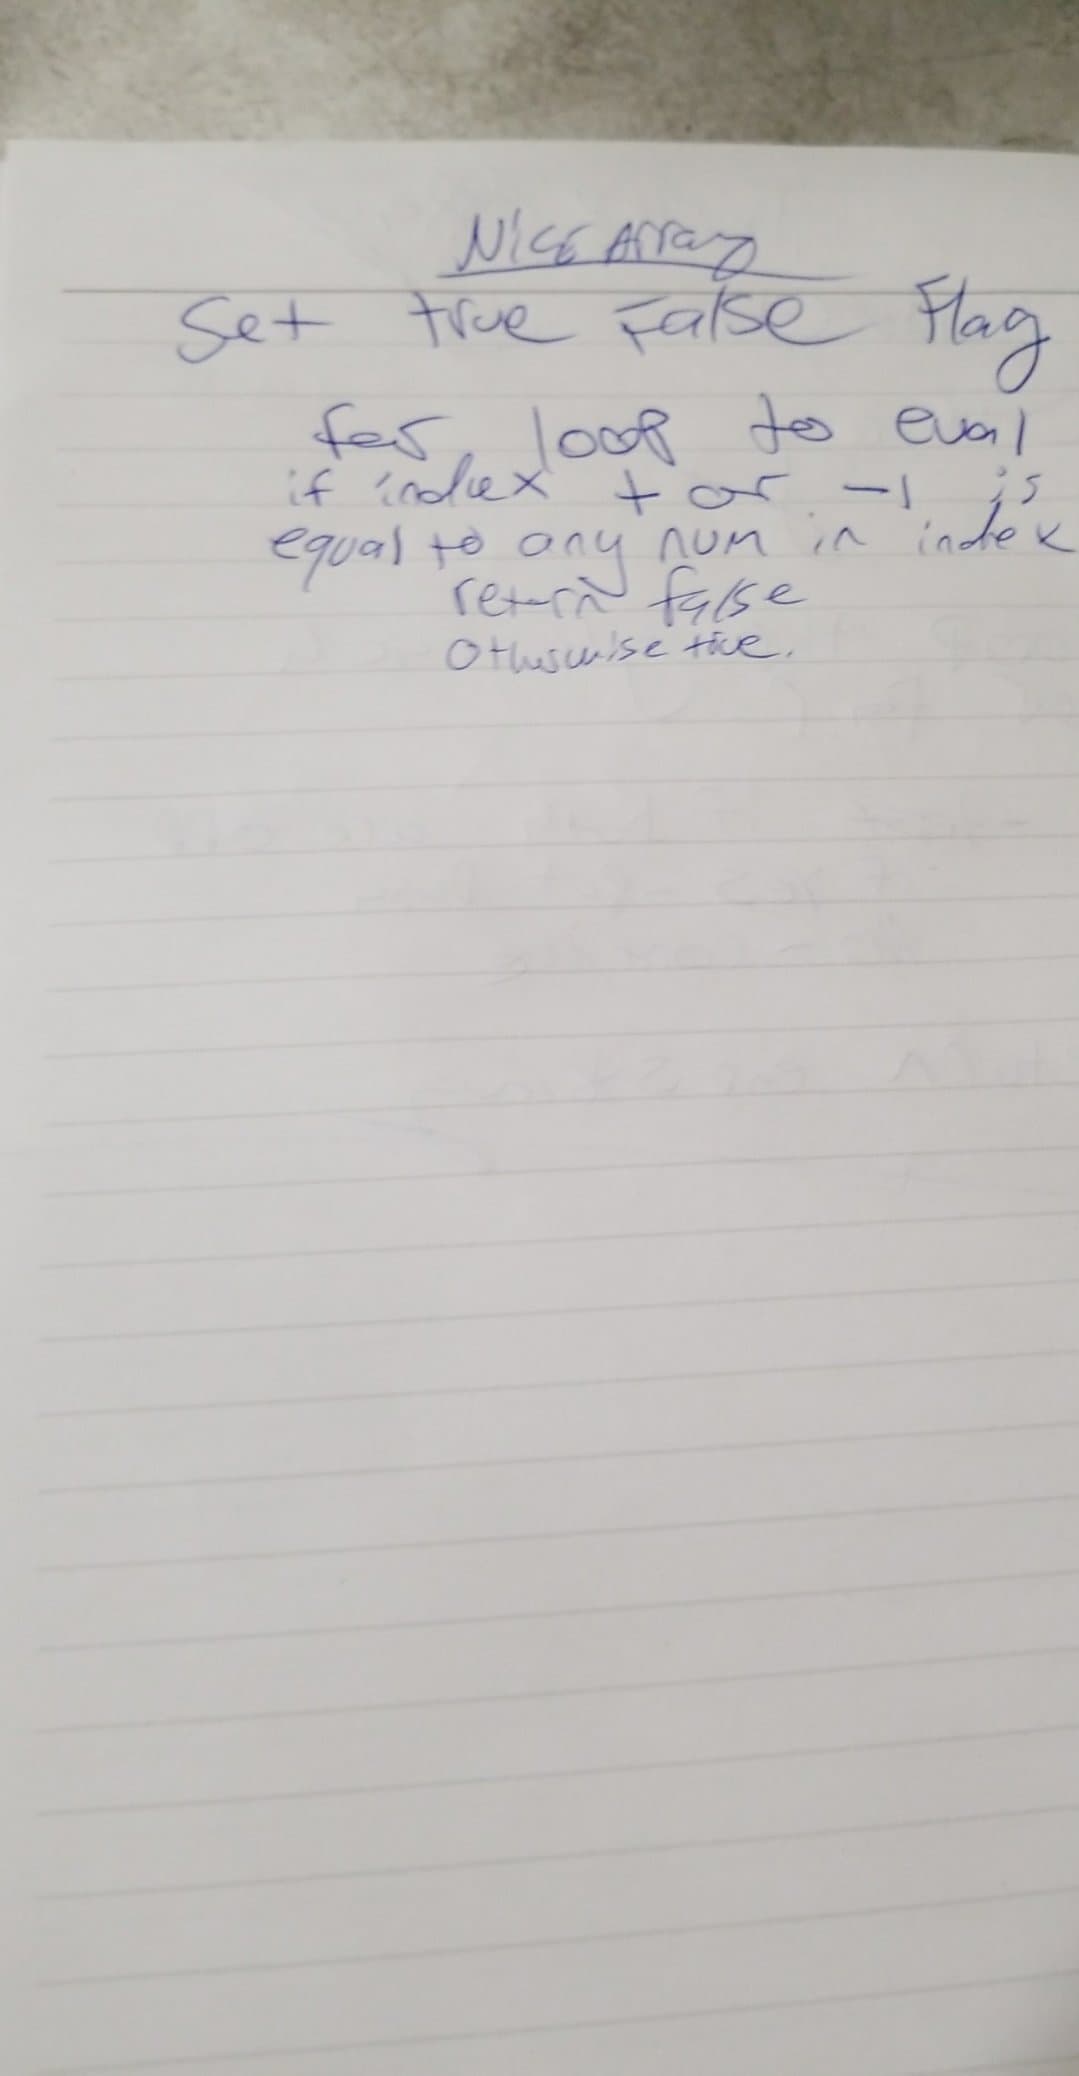 NICE Array
Set true False Flag
for loop to eval
if index + or -1 is
equal to any num in index
return false
Otherwise true.